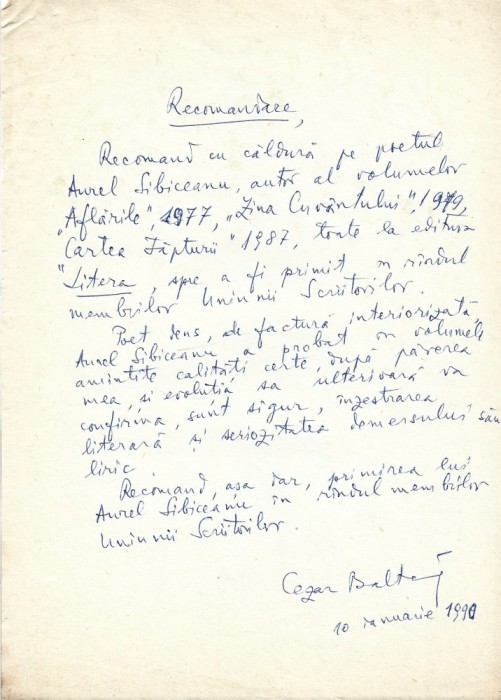 Recomandare,
Recomand cu căldură pe poetul
Aurel Sibiceanu, autor al volumelor
„Aflările", 1977, „Ziua Cuvântului", 1979,
„Cartea Făpturii" 1987, toate la editura
"Litera, spre a fi primit în rîndul
membrilor Uniunii Scriitorilor.
Poet dens, de factură interiorizată,
Aurel Sibiceanu a probat în volumele
amintite calități certe, după părerea
mea, și evoluția sa ulterioară va
confirma, sunt sigur, înzestrarea
literară și seriozitatea demersului său
liric
Recomand, așa dar, primirea lui
Aurel Sibiceanu în rîndul membrilor
Uniunii Scriitorilor.
Cezar Baltag
10 ianuarie 1990